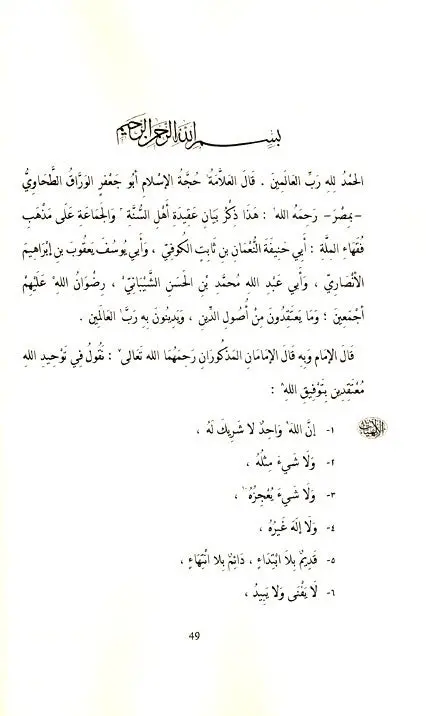 بِسْمِ اللَّهِ الرَّحْمَنِ الرَّحِيمِ
الحَمْدُ لِلهِ رَبِّ العَالَمِينَ . قَالَ العَلاَّمَةُ حُجَّةُ الإِسْلَامِ أَبُو جَعْفَرٍ الوَرَّاقُ الطَّحَاوِيُّ
-بِمِصْرَ- رَحِمَهُ اللهُ : هَذَا ذِكْرُ بَيَانِ عَقِيدَةِ أَهْلِ السُّنَّةِ وَالجَمَاعَةِ عَلَى مَذْهَبِ
فُقَهَاءِ المِلَّةِ : أَبِي حَنِيفَةَ النُّعْمَانِ بْنِ ثَابِتٍ الكُوفِيِّ ، وَأَبِي يُوسُفَ يَعْقُوبَ بنِ إِبْرَاهِيمَ
الأَنْصَارِيِّ ، وَأَبِي عَبْدِ اللهِ مُحَمَّدِ بْنِ الحَسَنِ الشَّيْبَانِيِّ ، رِضْوَانُ اللهِ عَلَيْهِمْ
أَجْمَعِينَ ؛ وَمَا يَعْتَقِدُونَ مِنْ أُصُولِ الدِّينِ ، وَيَدِينُونَ بِهِ رَبَّ العَالَمِينَ .
قَالَ الإِمَامُ وَبِهِ قَالَ الإِمَامَانِ المَذْكُورَانِ رَحِمَهُمَا اللهُ تَعَالَى : نَقُولُ فِي تَوْحِيدِ اللهِ
مُعْتَقِدِينَ بِتَوْفِيقِ اللهِ :
١- إِنَّ اللهَ وَاحِدٌ لَا شَرِيكَ لَهُ ،
٢- وَلَا شَيْءَ مِثْلُهُ ،
٣- وَلَا شَيْءَ يُعْجِزُهُ ،
٤- وَلَا إِلَهَ غَيْرُهُ ،
٥- قَدِيمٌ بِلَا ابْتِدَاءٍ ، دَائِمٌ بِلَا انْتِهَاءٍ ،
٦- لَا يَفْنَى وَلَا يَبِيدُ ،
49